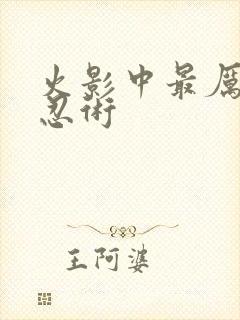 火影中最厲
忍術
王阿婆